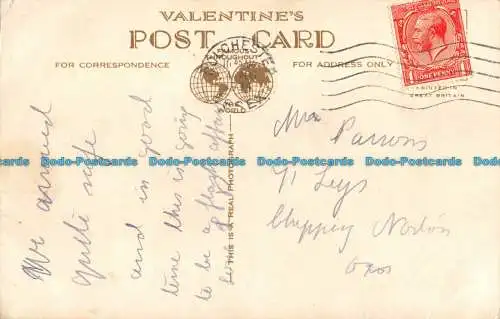 VALENTINE'S
POST CARD
FOR CORRESPONDENCE
FAMOUS
THROUGHOUT
THE
WORLD
FOR ADDRESS ONLY
CHESTER
ONE PENNY
PRINTED IN
GREAT BRITAIN
THIS IS A REAL PHOTOGRAPH
We arrived
quite safe
and in good
time this is going
to be a
Mrs Parsons
Leys
Chippey Norton
Oxos
Dodo-Postcards Dodo-Postcards Dodo-Postcards Dodo-Postcards Dodo-Postcards